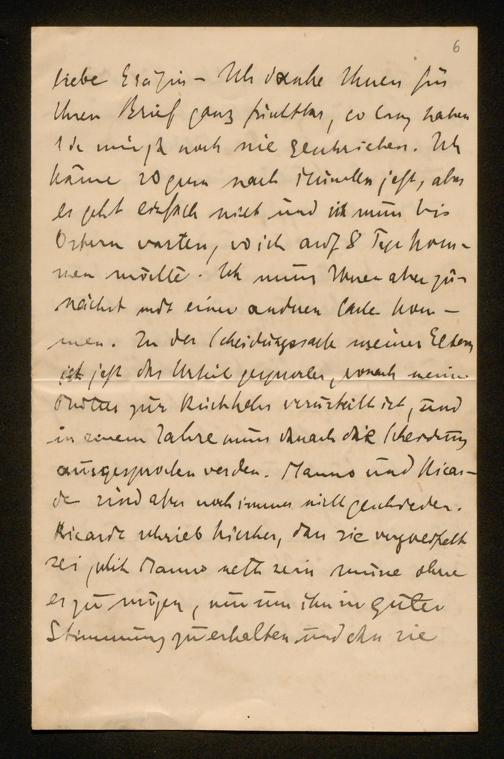 6
Liebe Gräfin – Ich danke Ihnen für
Ihren Brief ganz furchtbar, so lang haben
Sie mir ja noch nie geschrieben. Ich
käme so gern nach München jetzt, aber
es geht einfach nicht und ich muss bis
Ostern warten, wo ich auf 8 Tage kom-
men möchte. Ich muss Ihnen aber zu-
nächst mit einer anderen Sache kom-
men. In der Scheidungssache meiner Eltern
ist jetzt das Urteil gesprochen, wonach meine
Mutter zur Rückkehr verurteilt ist, und
in einem Jahre muss danach die Scheidung
ausgesprochen werden. Manno und Ricar-
da sind aber noch immer nicht geschieden.
Ricarda schrieb hierher, dass sie verzweifelt
sei, mit Manno nett sein müsse ohne
es zu mögen, nur um ihn in guter
Stimmung zu erhalten und den sie